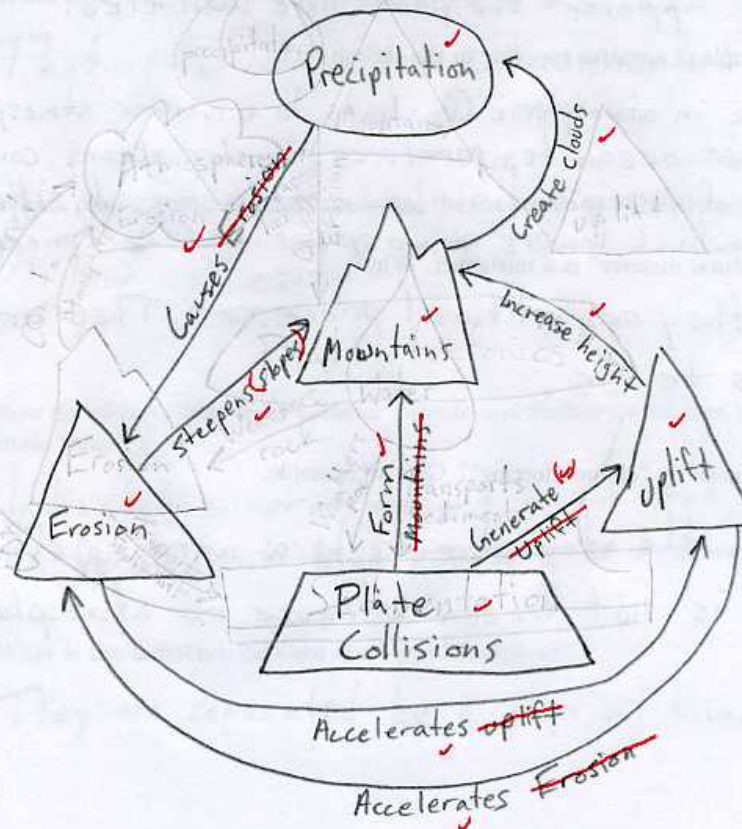 Precipitation
Create clouds
Causes Erosion
Mountains
Steepens (slopes)
Increase height
Erosion
Form Mountains
Generate (s)
Uplift
Uplift
Plate
Collisions
Accelerates Uplift
Accelerates Erosion